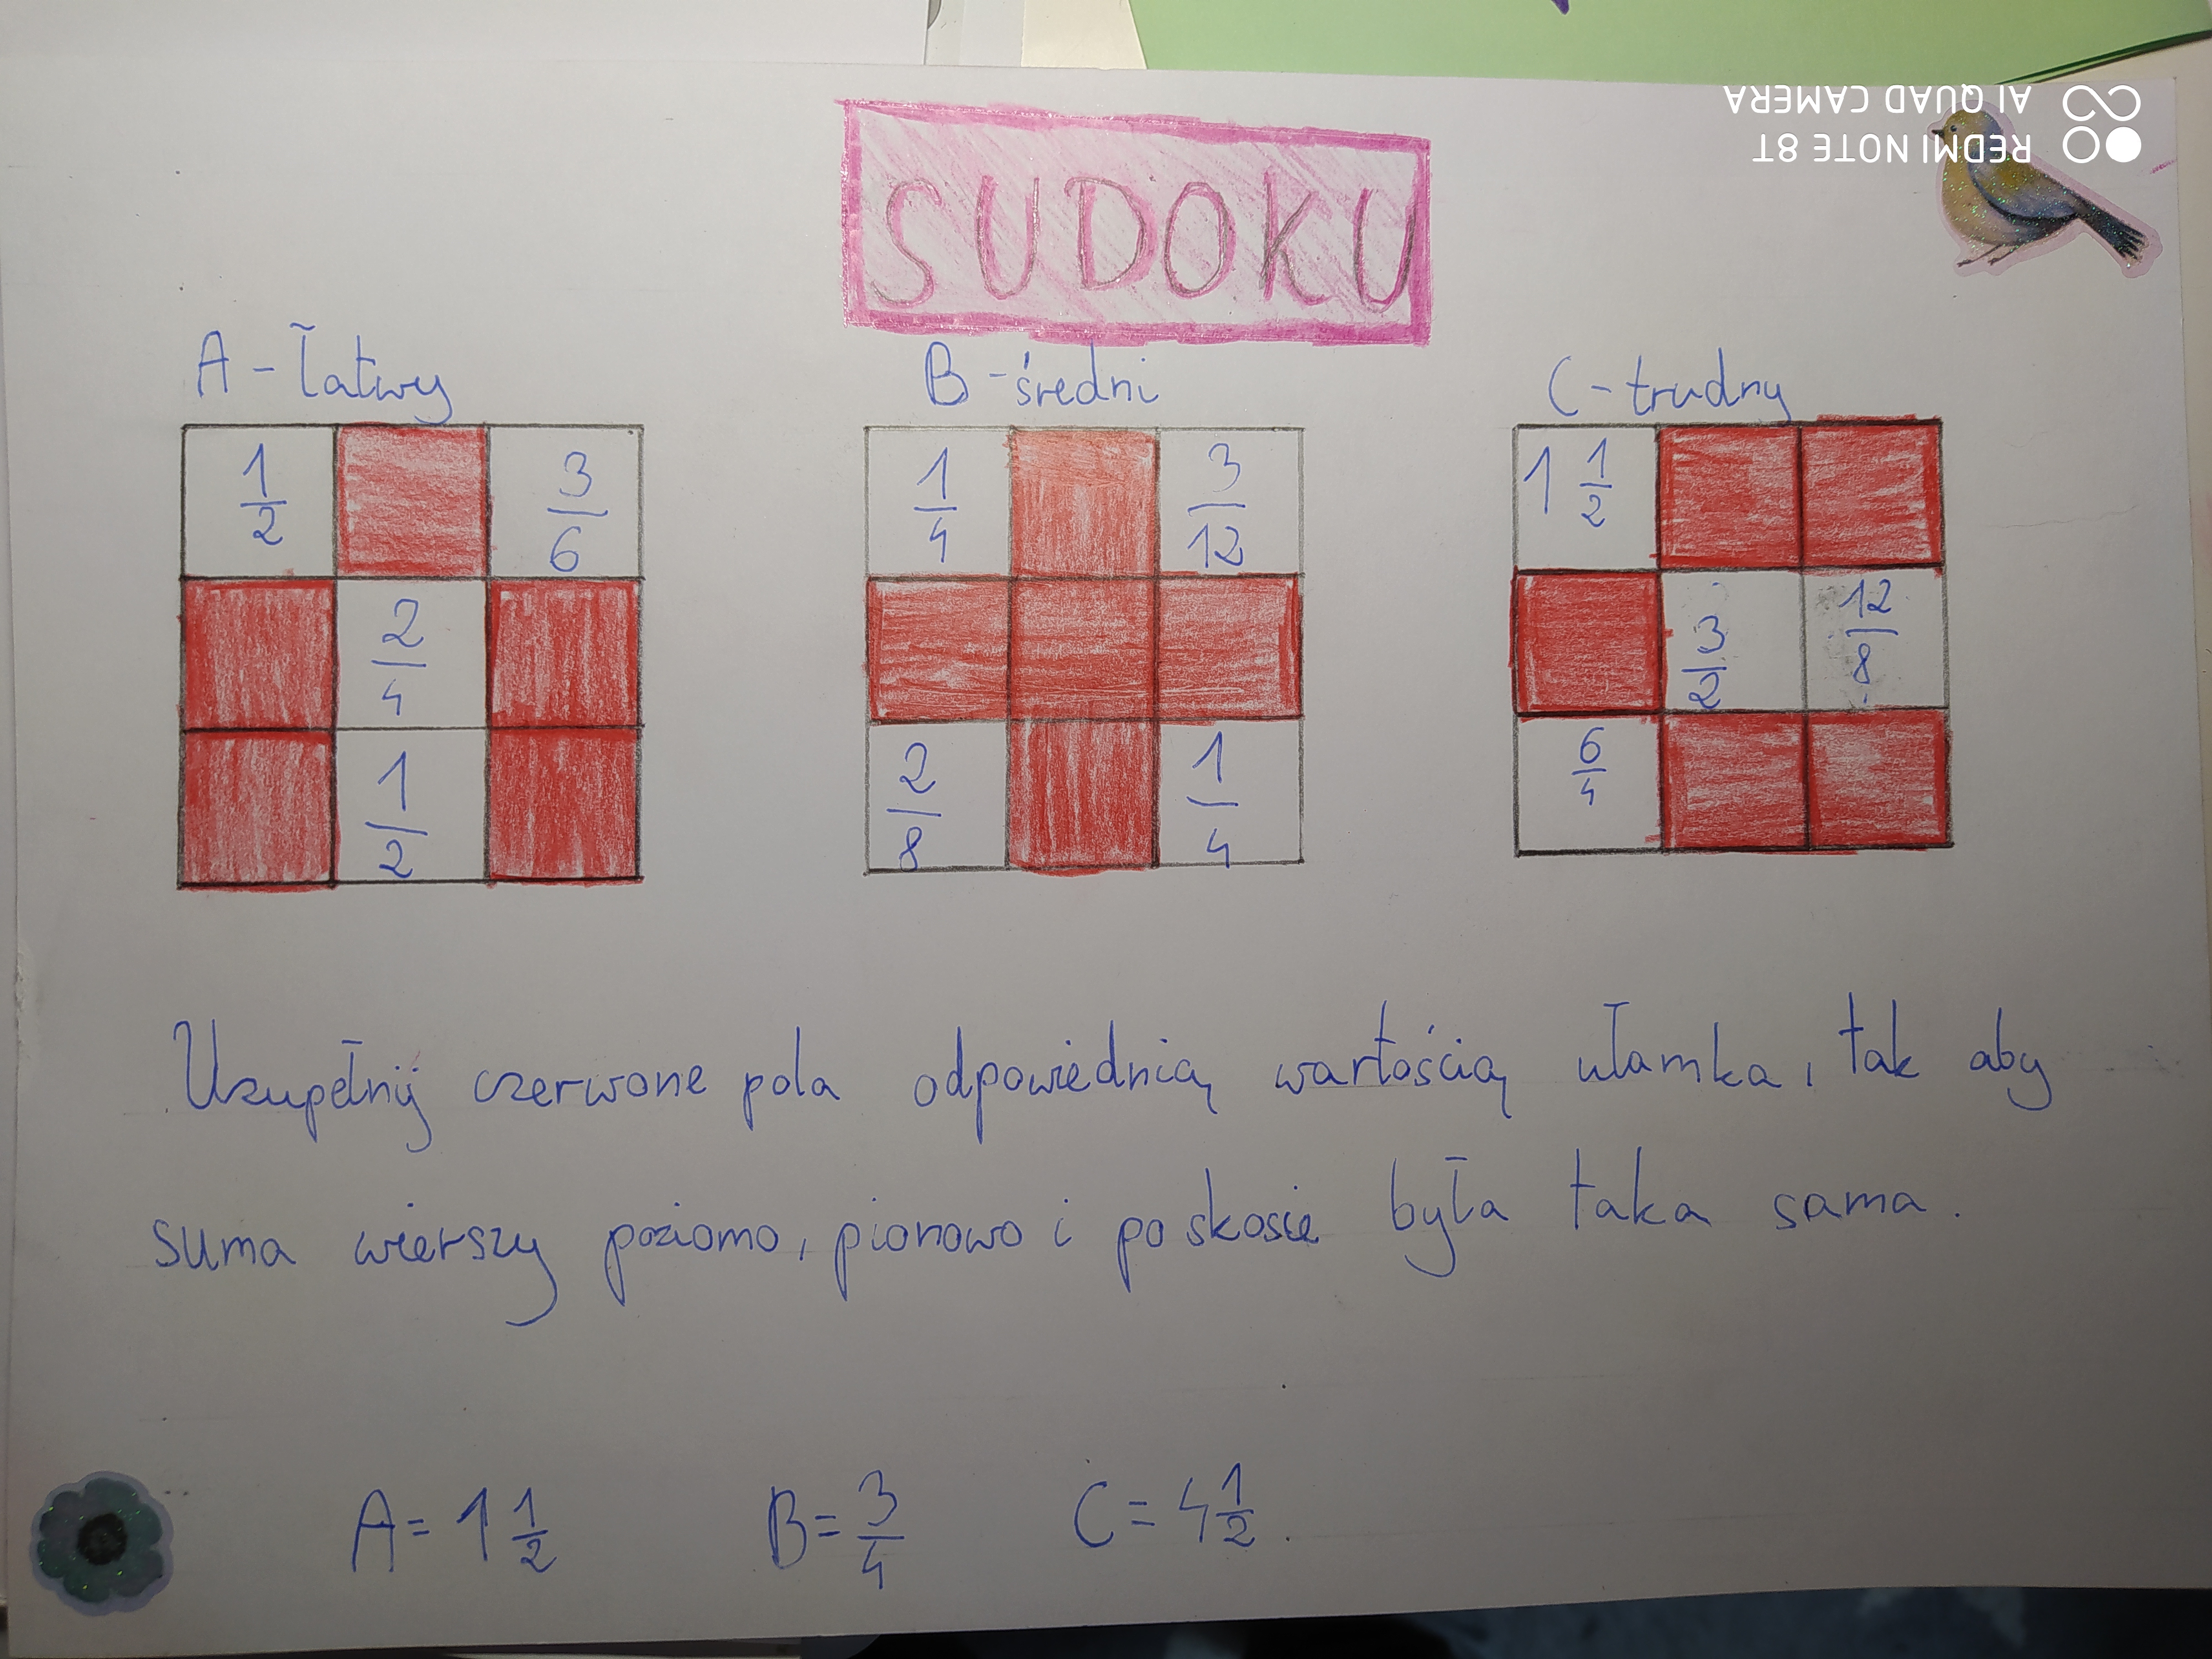 SUDOKU
A - łatwy
B - średni
C - trudny
1/2
3/6
2/4
1/2
1/4
3/12
2/8
1/4
1 1/2
3/2
12/8
6/4
Uzupełnij czerwone pola odpowiednią wartością ułamka, tak aby
suma wierszy poziomo, pionowo i po skosie była taka sama.
A = 1 1/2
B = 3/4
C = 4 1/2.
REDMI NOTE 8T
AI QUAD CAMERA